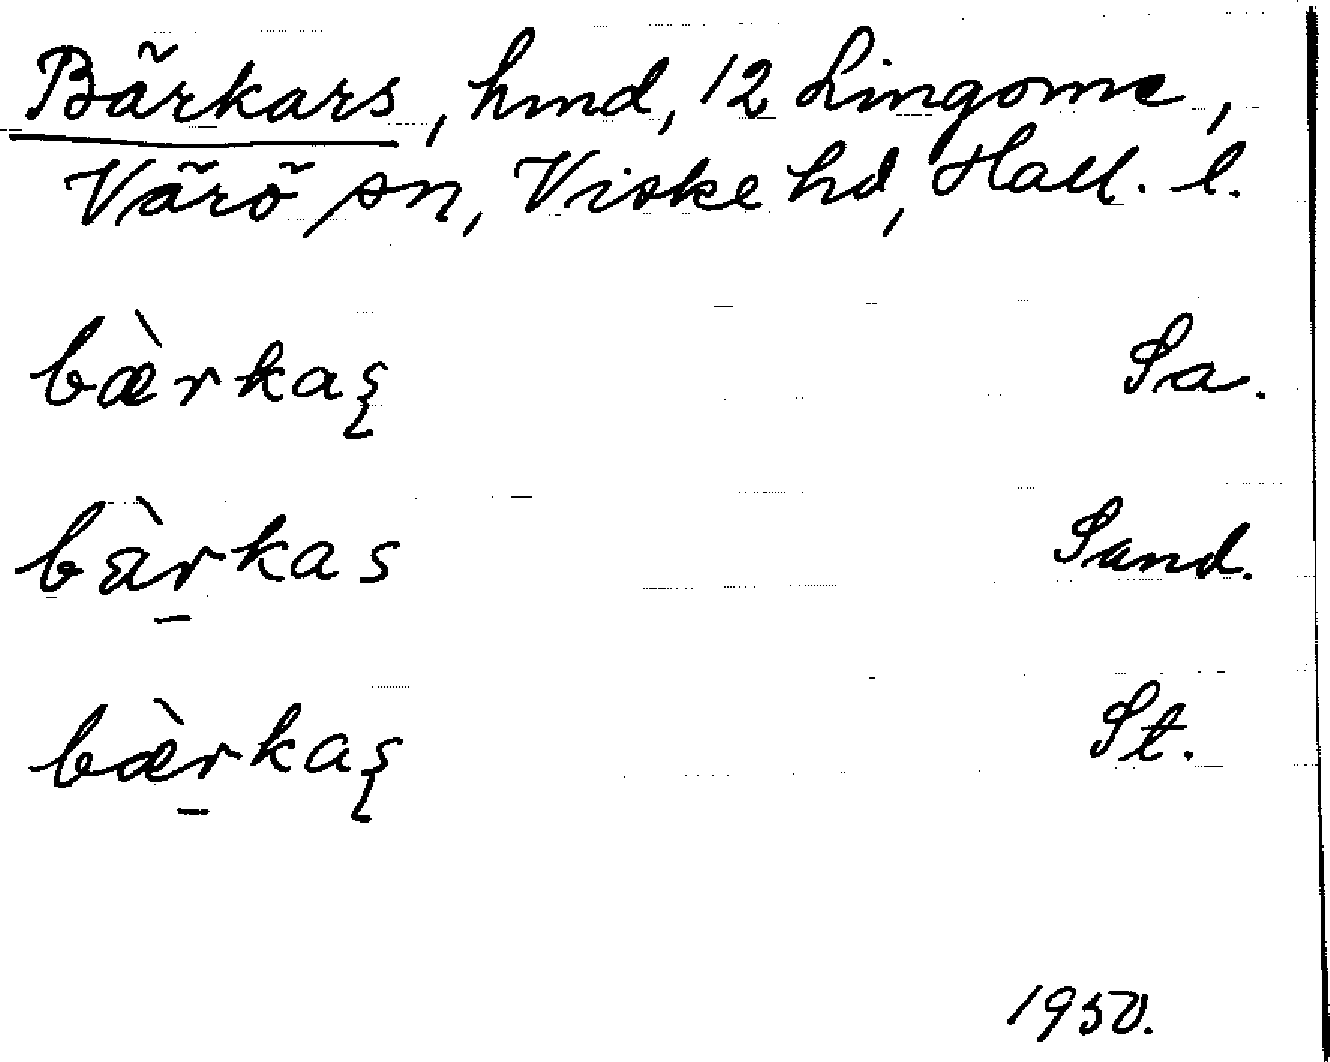 Bärkars, hmd, 12 Lingome,
Värö sn, Viske hd, Hall. l.
bæ̀rkaʂ Sa.
bàr̠kas Sand.
bæ̀r̠kaʂ St.
1950.